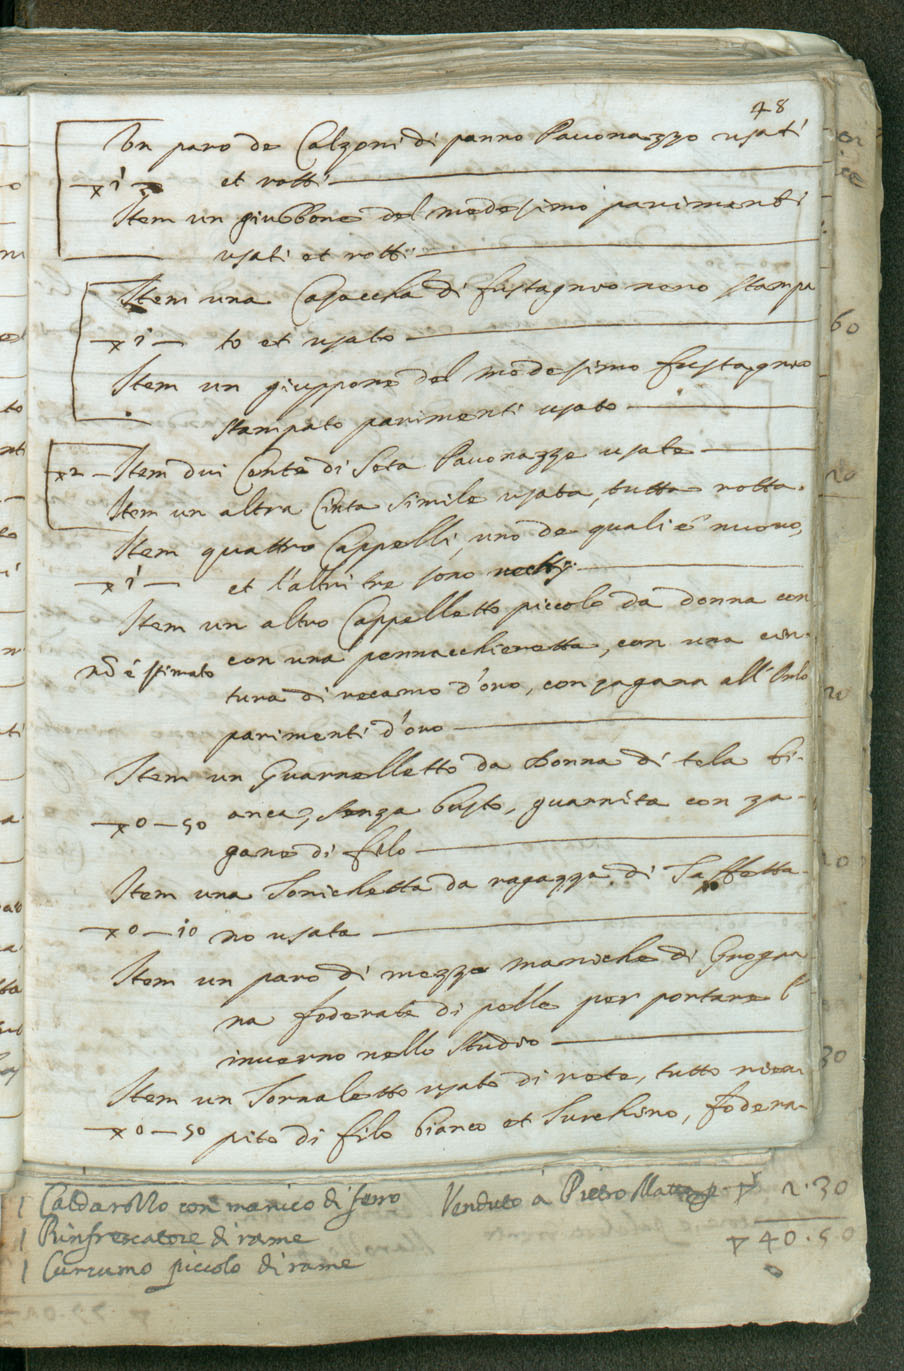 48
Un paro de Calzoni di panno Pauonazzo usati
x i — et rotti
Item un giubbone del medesimo parimenti
usati et rotti
Item una Casaccha di fustagno nero stampa
— x i — to et usato
Item un giuppone del medesimo fustagno
stampato parimenti usato
x 2 — Item dui Cente di Seta Pauonazze usate
Item un altra Cinta simile usata, tutta rotta.
Item quattro Cappelli, uno de quali è nuouo,
— x i — et l'altri tre sono vecchi
Item un altro Cappelletto piccolo da donna con
nõ è stimato con una pennacchieretta, con una cin-
tura di recamo d'oro, con zagana all'
parimenti d'oro
Item un Guarnelletto da Donna di tela bi-
— x 0 — 50 anca, senza busto, guarnita con za-
gane di filo
Item una Tonichetta da ragazza di Taffetta-
— x 0 — 10 no usata
Item un paro di mezze maniche di Grogra
na foderate di pelle per portare l'
inuerno nello Studio
Item un Tornaletto usato di rete, tutto reca-
— x 0 — 50 pito di filo bianco et Turchino, fodera-
1 Caldarozzo con manico di ferro Venduto à Pietro 2.30
1 Rinfrescatore di rame 40.50
1 Cucumo piccolo di rame
60
20
20
10
30